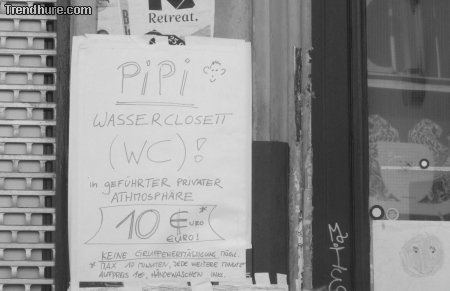 Trendhure.com
Retreat.
PiPi
WASSERCLOSETT
(WC)!
in GEFÜHRTER PRIVATER
ATHMOSPHÄRE
10 €URO*
EURO!
KEINE GRUPPENERMÄSSIGUNG MÖGL.
* MAX 10 MINUTEN, JEDE WEITERE MINUTE
AUFPREIS 1€, HÄNDEWASCHEN INKL.